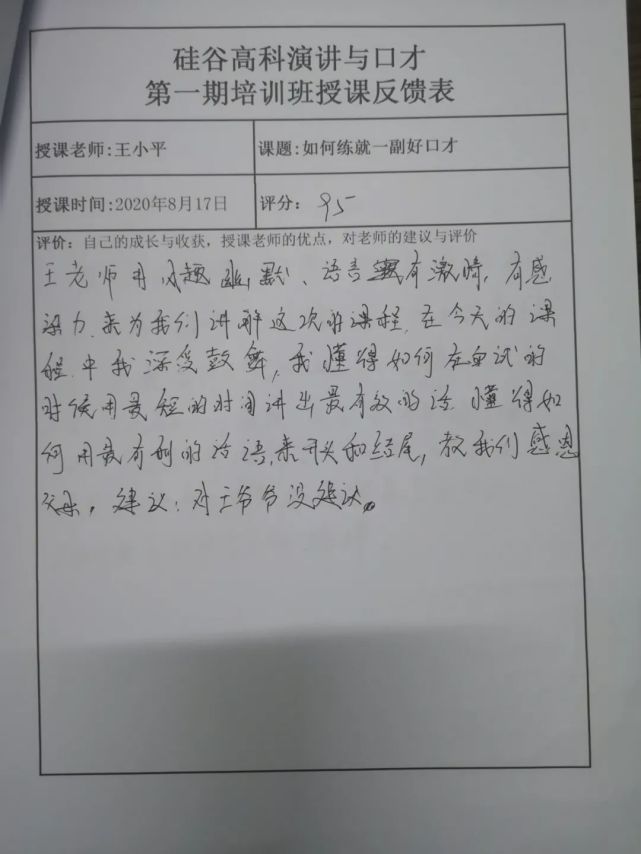 硅谷高科演讲与口才
第一期培训班授课反馈表
授课老师:王小平
课题:如何练就一副好口才
授课时间:2020年8月17日
评分: 95
评价: 自己的成长与收获, 授课老师的优点, 对老师的建议与评价
王老师用风趣幽默、语言有激情, 有感
染力, 来为我们讲解这次的课程, 在今天的课
程中我深受鼓舞, 我懂得如何在面试的
时候用最短的时间讲出最有效的话, 懂得如
何用最有利的话语, 来开头和结尾, 教我们感恩
父母。建议: 对王爷爷没建议。